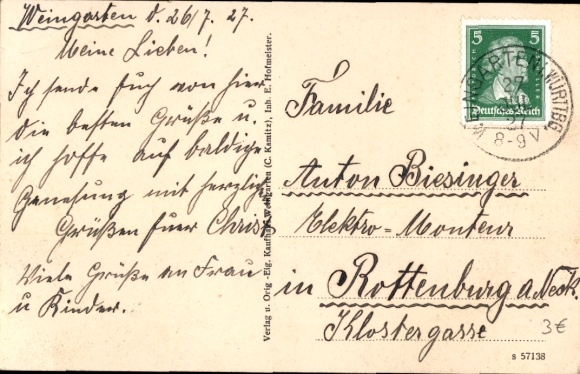 Weingarten d. 26/7. 27.
Meine Lieben!
Ich sende Euch von hier
die besten Grüße u.
ich hoffe auf baldige
Genesung mit herzlich
Grüßen Euer Christ
Viele Grüße an Frau
u Kinder.
Verlag u. Orig.-Eig. Kaufhaus Weingarten (C. Kamitz), Inh. E. Hofmeister.
5 5
Deutsches Reich
WEINGARTEN (WÜRTTBG)
27
27
8-9V
Familie
Anton Biesinger
Elektro=Monteur
in Rottenburg a. Neck.
Klostergasse
3€
s 57138